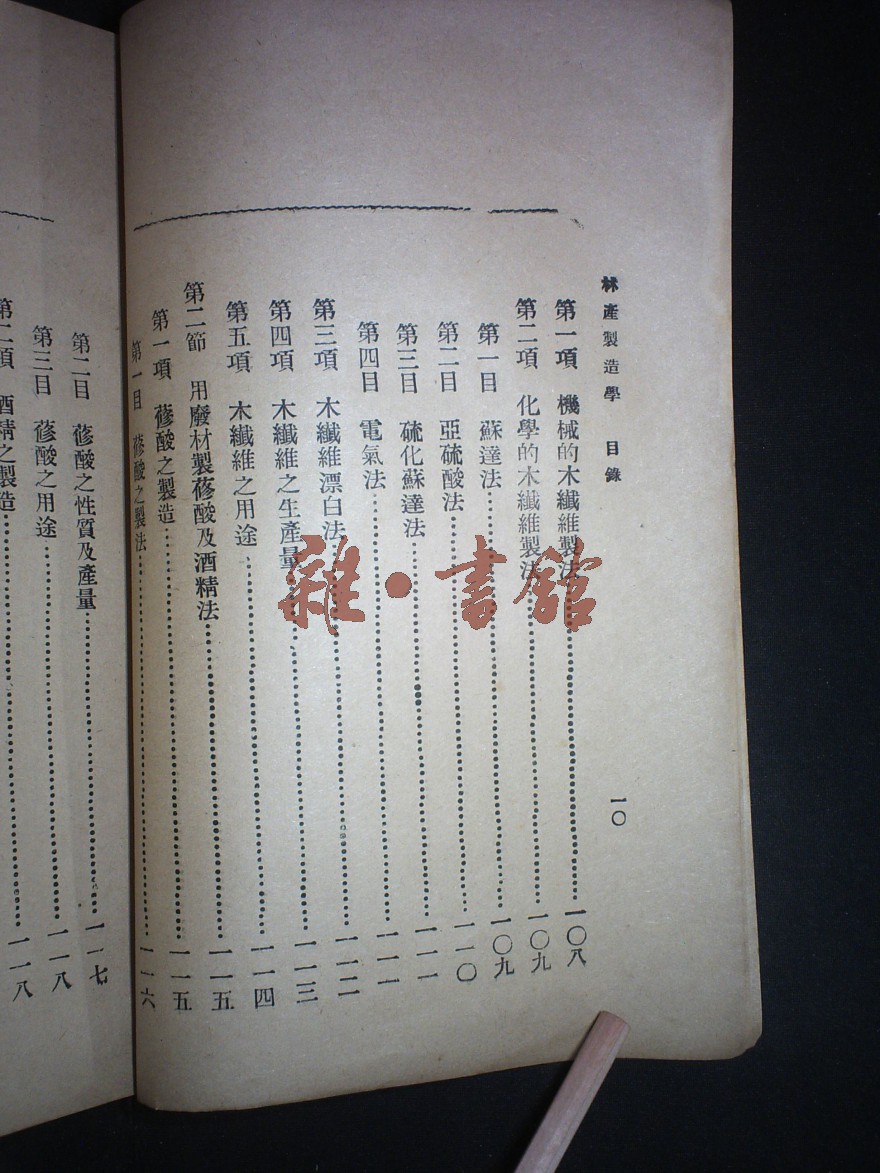 林產製造學 目錄 一〇
第一項 機械的木纖維製法 一〇八
第二項 化學的木纖維製法 一〇九
第一目 蘇達法 一〇九
第二目 亞硫酸法 一一〇
第三目 硫化蘇達法 一一一
第四目 電氣法 一一一
第三項 木纖維漂白法 一一二
第四項 木纖維之生產量 一一三
第五項 木纖維之用途 一一四
第二節 用廢材製蓚酸及酒精法 一一五
第一項 蓚酸之製造 一一五
第一目 蓚酸之製法 一一六
第二目 蓚酸之性質及產量 一一七
第三目 蓚酸之用途 一一八
第二項 酒精之製造 一一八
雜·書館